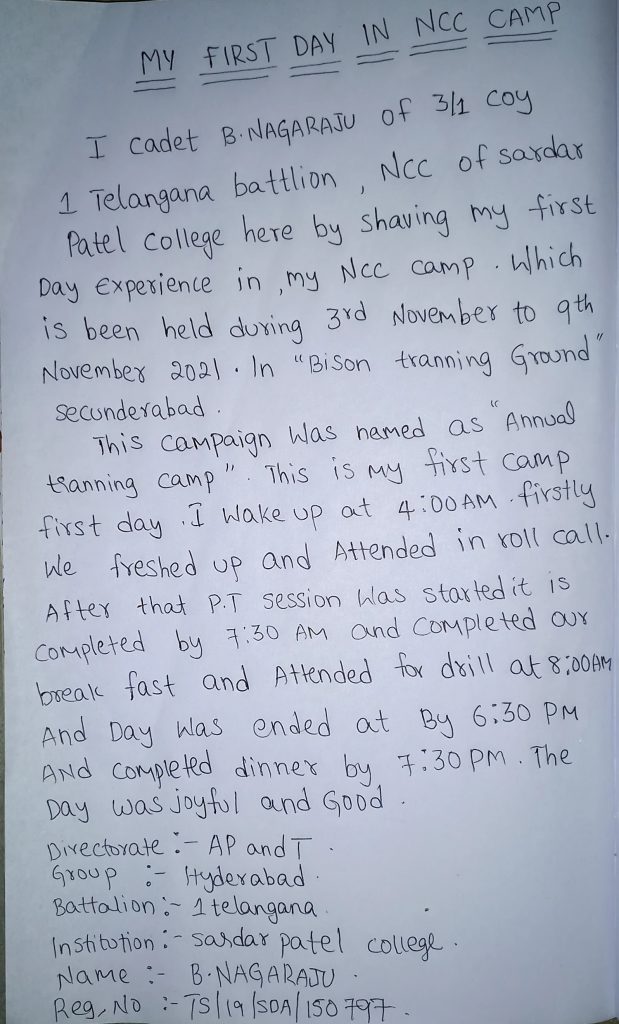 MY FIRST DAY IN NCC CAMP
I cadet B.NAGARAJU of 3/1 coy
1 Telangana battlion , NCC of sardar
Patel college here by shaving my first
Day Experience in ,my NCC camp . Which
is been held during 3rd November to 9th
November 2021 . In "Bison tranning Ground"
secunderabad .
This campaign Was named as "Annual
tranning camp" . This is my first camp
first day . I Wake up at 4:00AM . firstly
We freshed up and Attended in roll call.
After that P.T session Was started it is
completed by 7:30 AM and completed our
break fast and Attended for drill at 8:00AM
And Day Was ended at By 6:30 PM
AND completed dinner by 7:30 PM . The
Day was joyful and Good .
Directorate :- AP and T .
Group :- Hyderabad .
Battalion :- 1 telangana .
Institution :- sardar patel college .
Name :- B.NAGARAJU .
Reg, No :- TS/19/SDA/150797 .